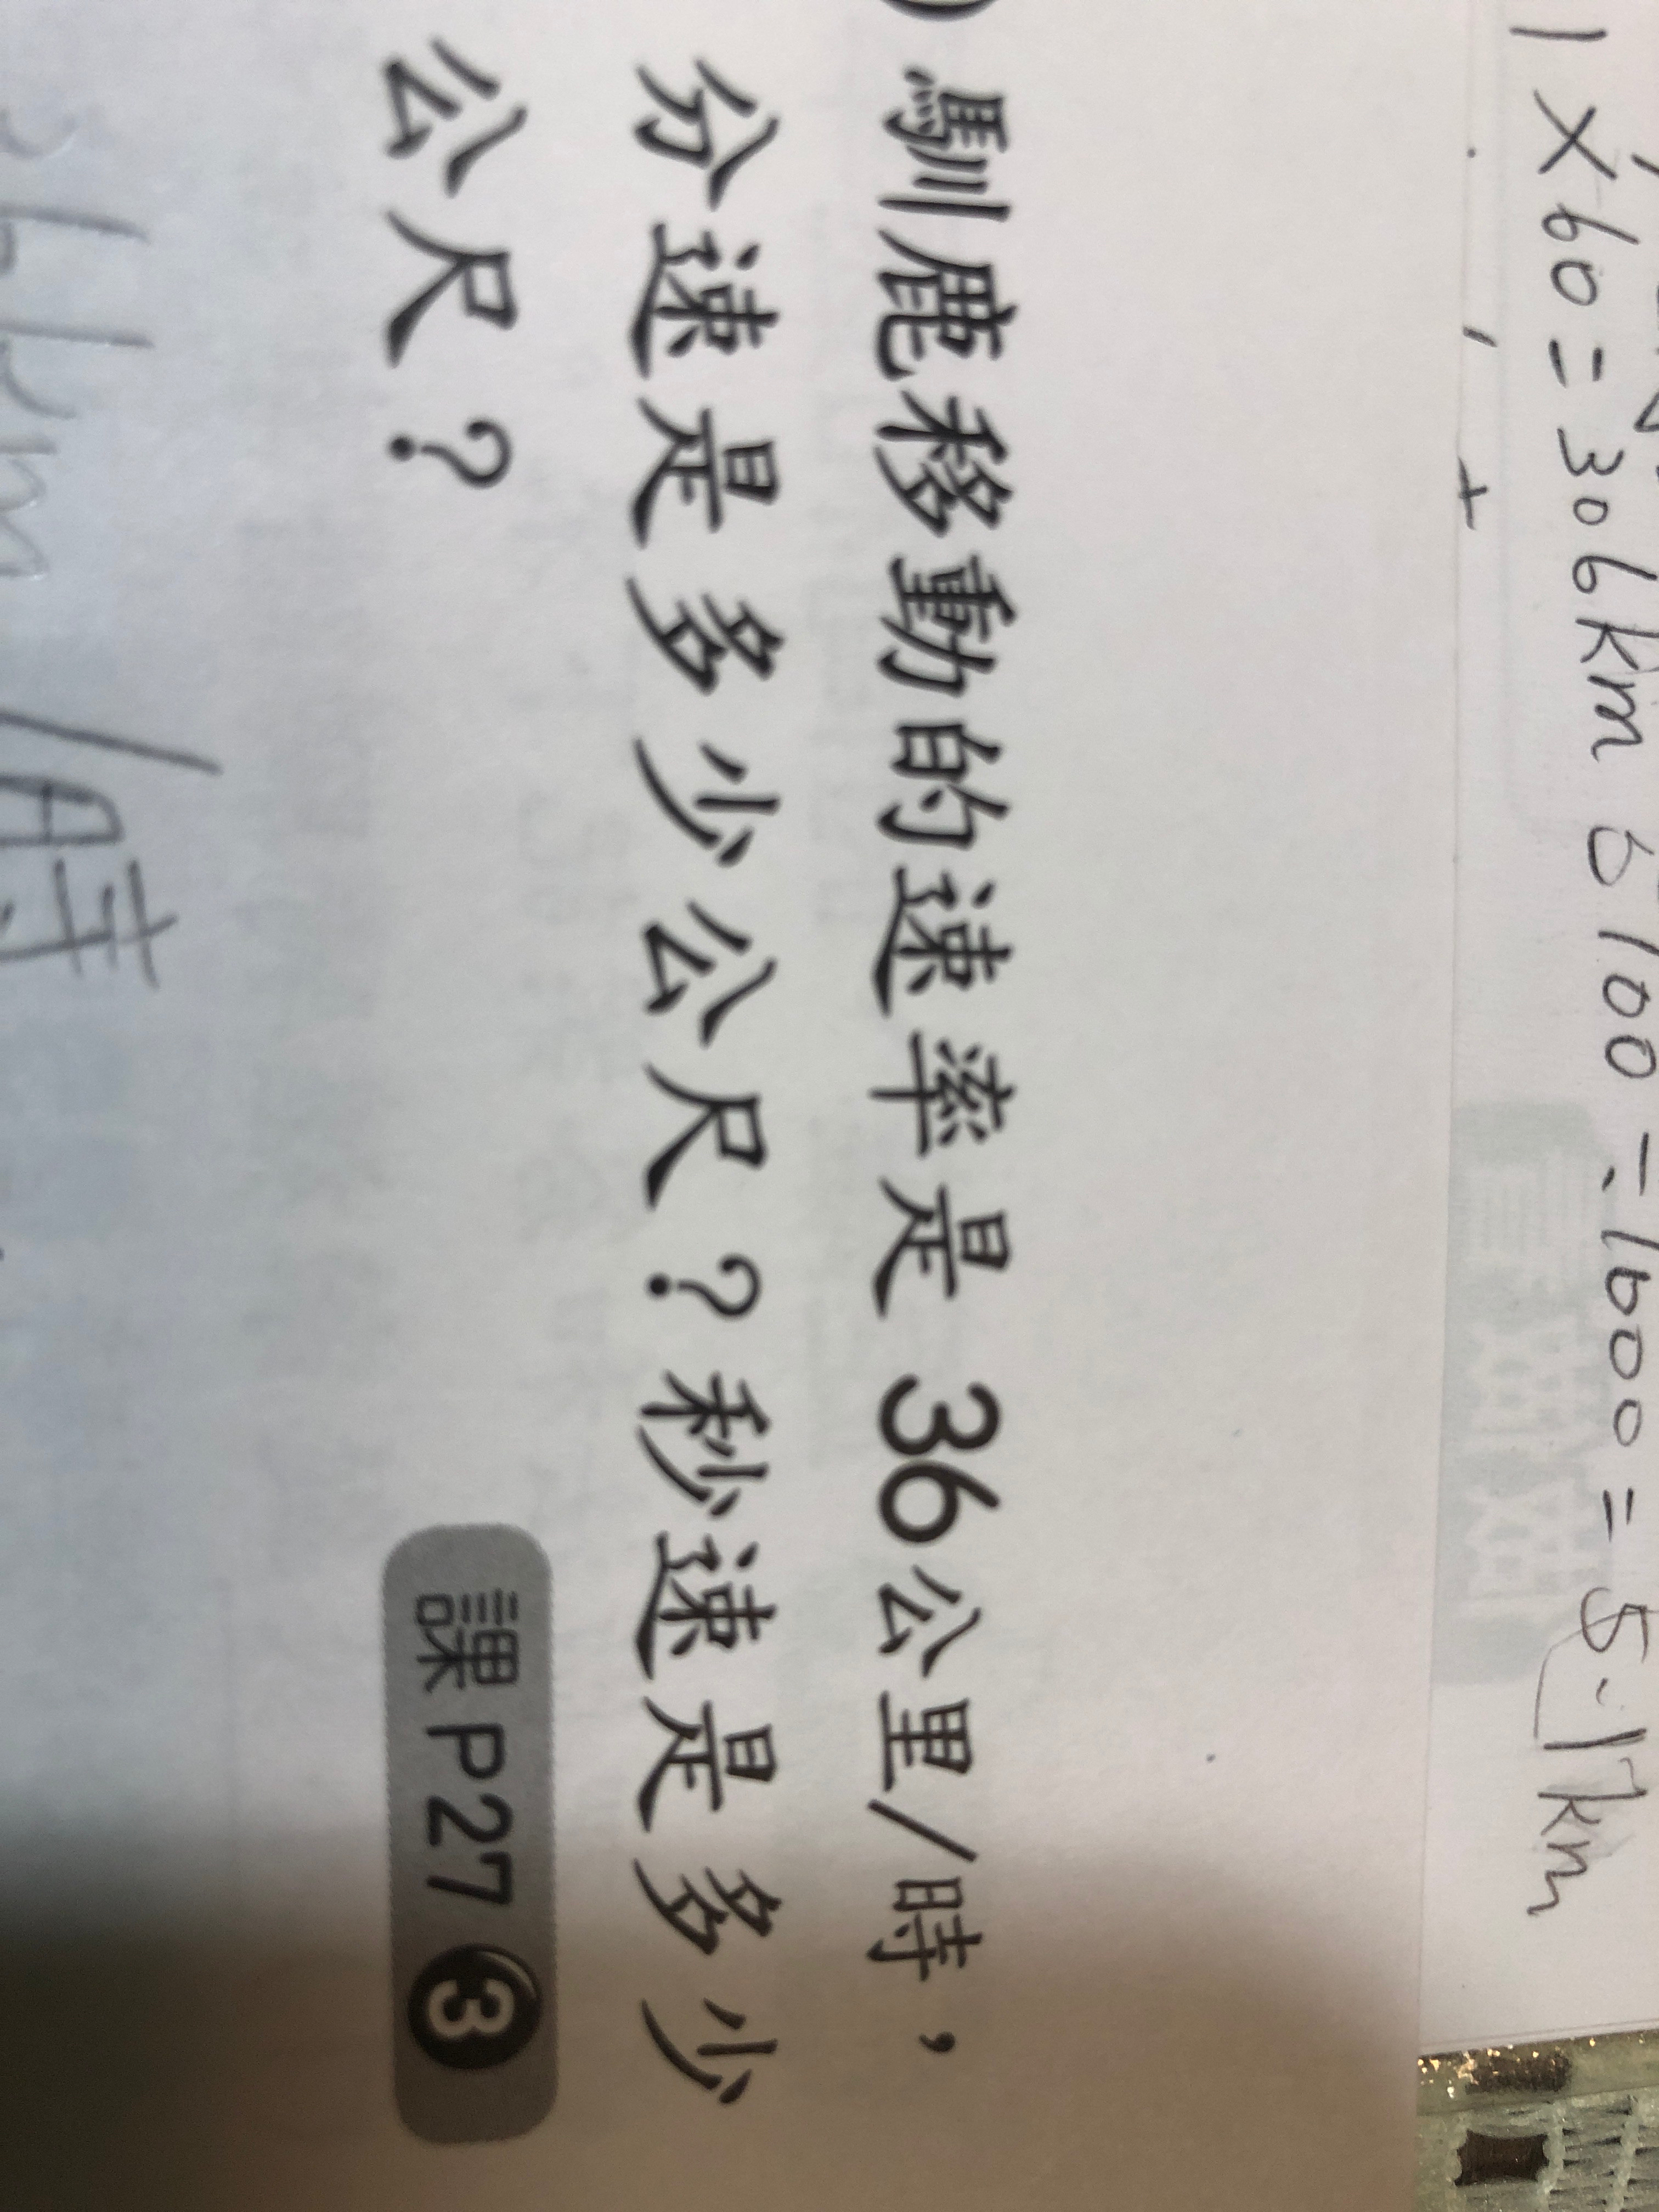 1×60=306km 5100÷1000=5.1km
馴鹿移動的速率是 36公里/時，
分速是多少公尺？秒速是多少
公尺？
課 P27 3
36km/時